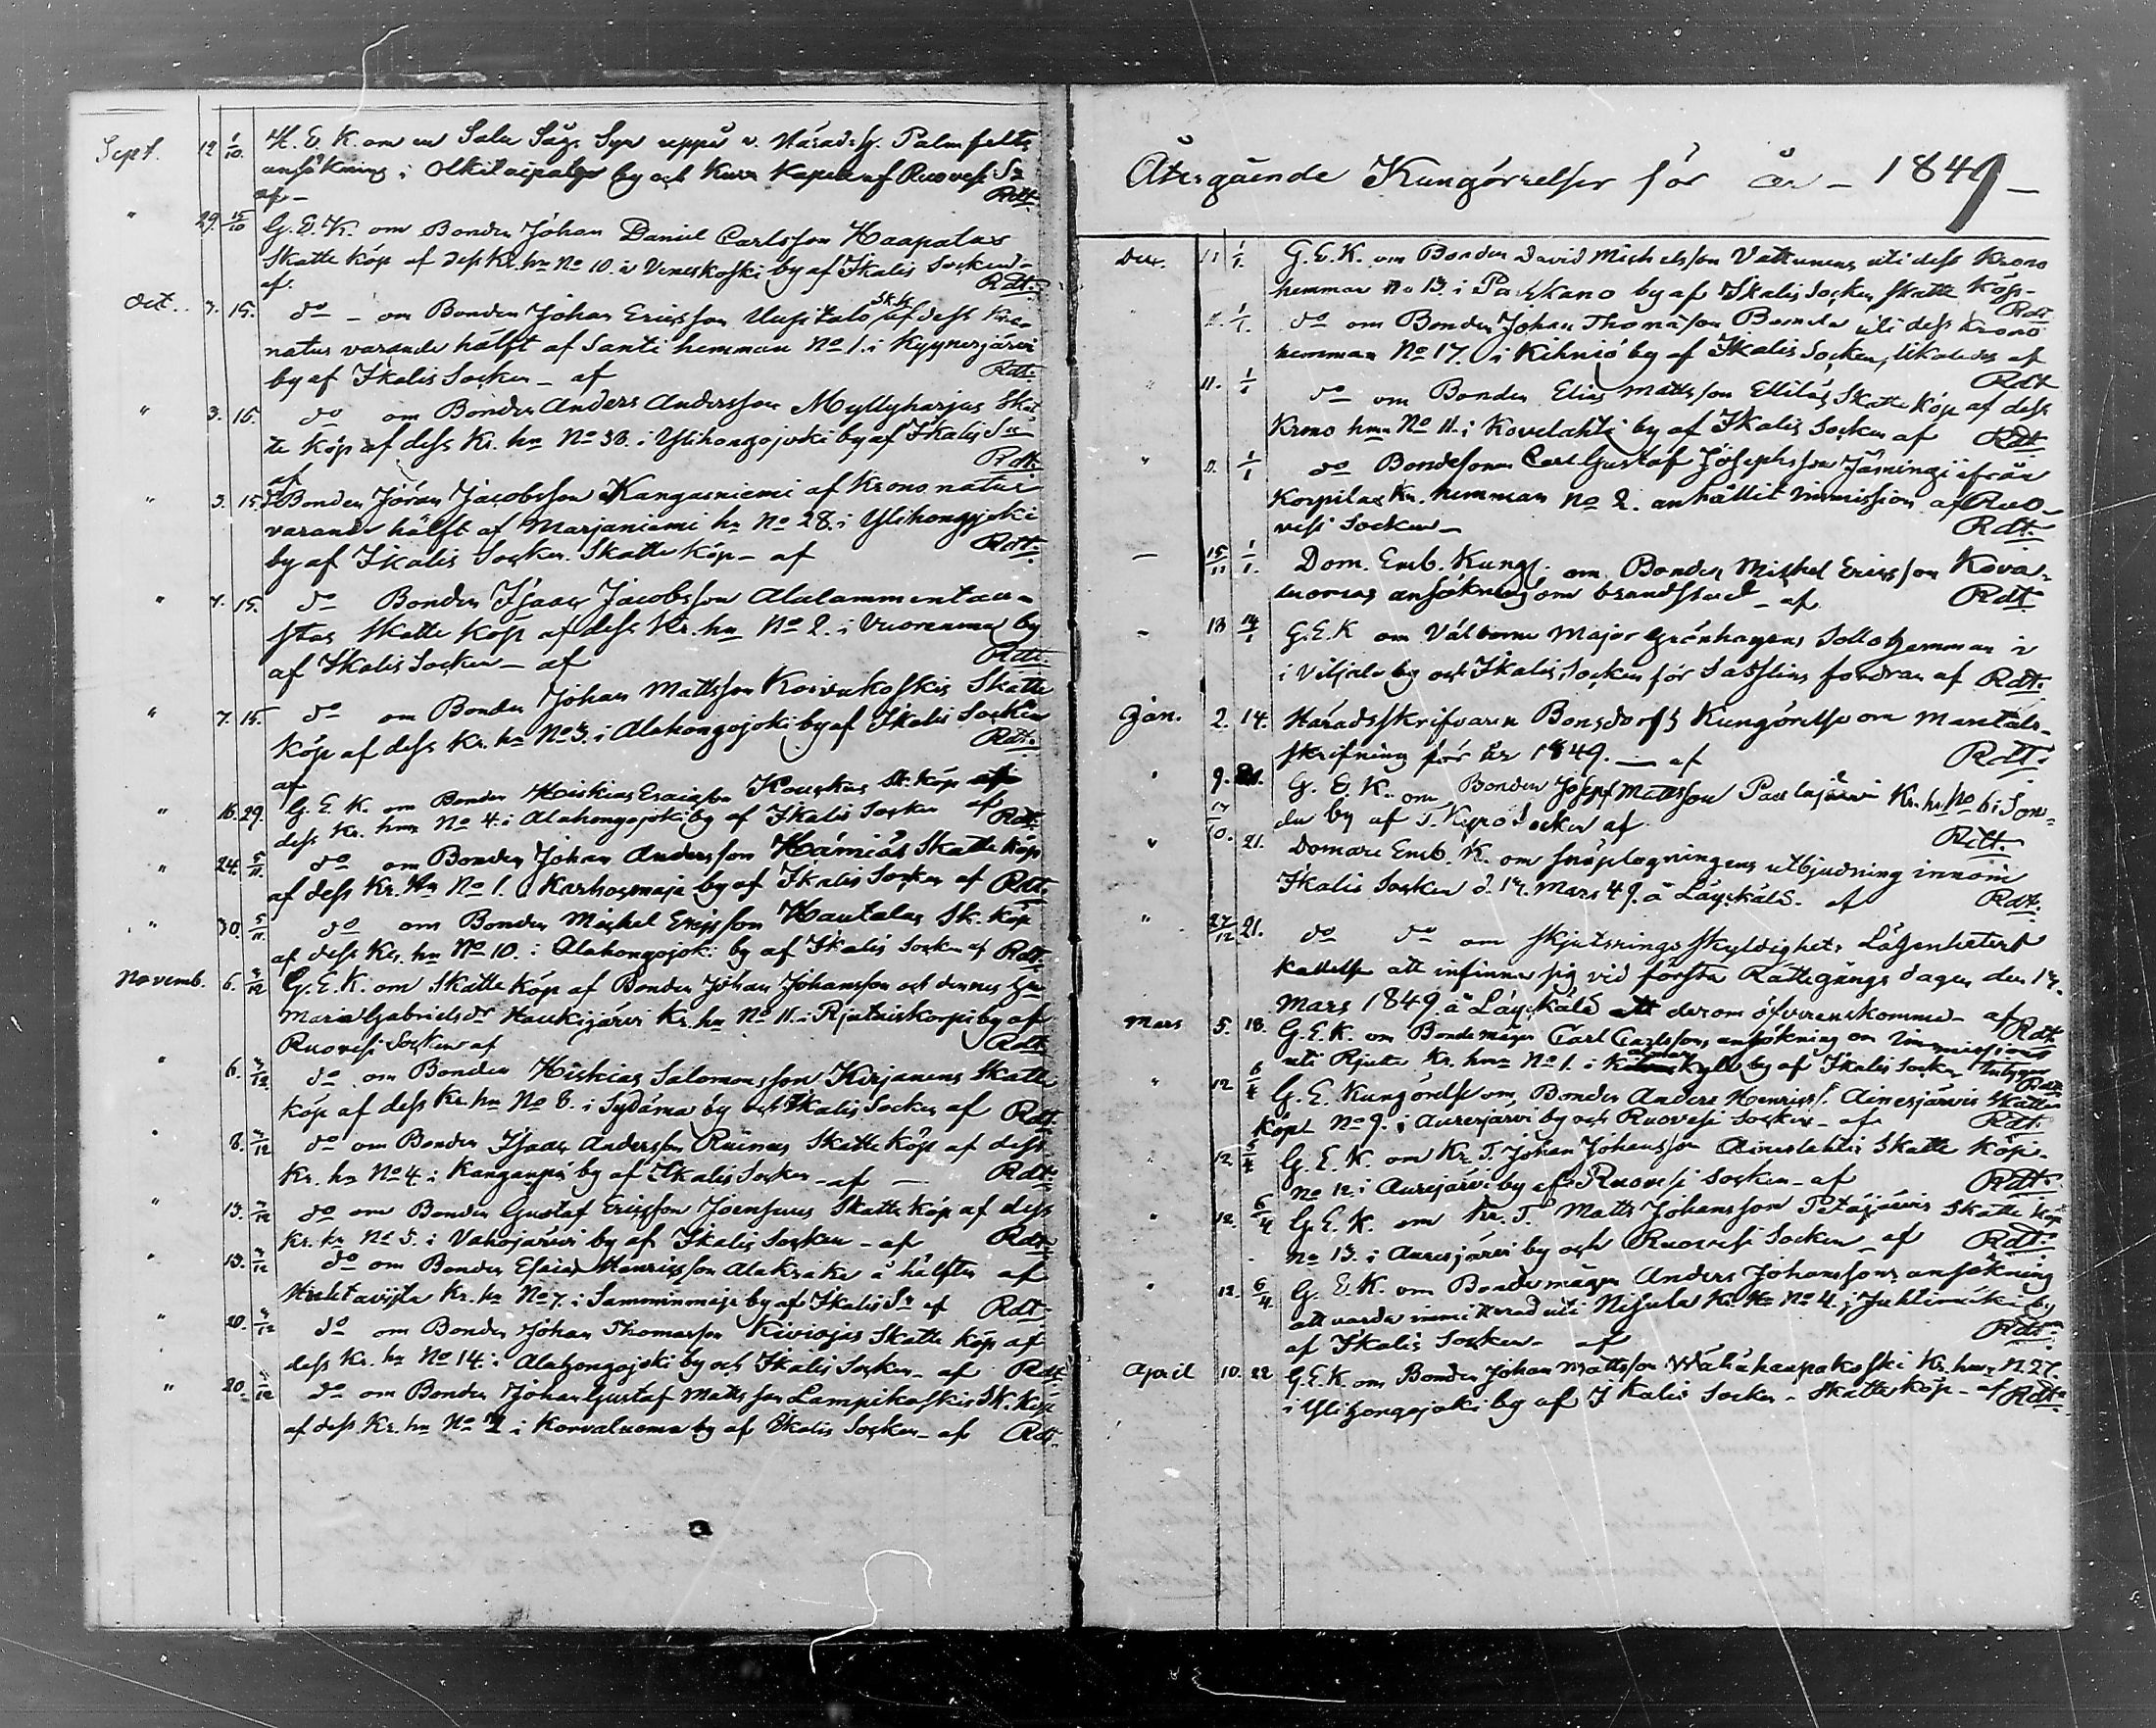 Sept. 12 1/10. H. E. K. om en Salu Såg. Syn uppå v. Härads h. Palmfelts
ansökning i Olkitaipale by och Kuru Kapell af Ruovesi Sn
af — Rdt.
" 29. 15/10 G. E. K. om Bonden Johan Daniel Carlsson Haapalas
Skatte köp af dess Kr. hn No 10. i Veneskoski by af Ikalis Socken
af. Rdt.
Oct. 3. 15. do — om Bonden Johan Ericsson Uusitalo Sk. k. af dess Krono
natur varande hälft af Santi hemman No 1. i Kyynerjärvi
by af Ikalis Socken — af Rdt.
" 3. 15. do om Bonden Anders Andersson Myllyharjus Skat
te köp af dess Kr. hn No 38. i Ylihongojoki by af Ikalis Sn
af Rdt.
" 3. 15. do Bonden Jöran Jacobsson Kangasniemi af Krono natur
varande hälft af Marjaniemi hn No 28. i Ylihongojoki
by af Ikalis Socken. Skatte köp — af Rdt.
" 7. 15. do Bonden Isaac Jacobsson Alalammentau=
stas Skatte köp af dess Kr. hn No 2. i Vuorenmaa by
af Ikalis Socken — af Rdt.
" 7. 15. do om Bonden Johan Mattsson Koivukoskis Skatte
köp af dess Kr. hn No 3. i Alahongojoki by af Ikalis Socken
af Rdt.
" 16. 29. G. E. K. om Bonden Hiskias Esaiasson Kouskus Sk. köp af
dess Kr. hmn No 4. i Alahongojoki by af Ikalis Socken af Rdt.
" 24. 5/11. do om Bonden Johan Andersson Hämiös Skatte köp
af dess Kr. hn No 1. i Karhoismaja by af Ikalis Socken af Rdt.
" 30. 5/11. do om Bonden Michel Ericsson Hautalas Sk. köp
af dess Kr. hn No 10. i Alahongojoki by af Ikalis Socken af Rdt.
Novemb. 6. 3/12 G. E. K. om Skatte köp af Bonden Johan Johansson och dennes hu
Maria Gabrielsdr Haukijärvi Kr. hn No 11. i Pjutaiskorpi by af
Ruovesi Socken af Rdt.
" 6. 3/12. do om Bonden Hiskias Salomonsson Kirjanens Skatte
köp af dess Kr. hn No 8. i Sydänmaa by och Ikalis Socken af Rdt.
" 8. 3/12 do om Bonden Isaac Andersson Rainas Skatte köp af dess
Kr. hn No 4. i Kangenpä by af Ikalis Socken — af — Rdt.
" 13. 3/12 do om Bonden Gustaf Ericsson Joensuus Skatte köp af dess
Kr. hn No 5. i Vahojärvi by af Ikalis Socken — af Rdt.
" 13. 3/12 do om Bonden Esaias Henricsson Alakrake å hälften af
Kr. hn No 7. i Samminmaja by af Ikalis Sn af Rdt.
" 20. 3/12 do om Bonden Johan Thomasson Kiviojas Skatte köp af
dess Kr. hn No 14. i Alahongojoki by och Ikalis Socken — af Rdt.
" 20. 3/12 do om Bonden Johan Gustaf Mattsson Lampikoskis Sk. köp
af dess Kr. hn No 2 i Korvaluoma by af Ikalis Socken — af Rdt.
Återgående Kungörelser för år — 1849 —
Dec. 11 1/1. G. E. K. om Bonden David Michelsson Vattunens uti dess Krono
hemman No 13. i Parkano by af Ikalis Socken skatte köp —
Rdt.
" 11. 1/1. do om Bonden Johan Thomasson uti dess Krono
hemman No 17. i Kihniö by af Ikalis Socken, likaledes af
Rdt
" 11. 1/1 do om Bonden Elias Mattsson Ellilas Skatte köp af dess
Krono hmn No 11. i Kovelahti by af Ikalis Socken af Rdt
" 11. 1/1 do Bondesonen Carl Gustaf Josephsson Jäsningi ifrån
Korpilax Kr. hemman No 2. anhållit immission af Ruo-
vesi Socken — Rdt.
— 15/11 1/1. Dom. Emb. Kungl. om Bonden Michel Ericsson Kova=
luomas ansökning om brandstod — af Rdt.
— 13 14/1 G. E. K om Välborne Major Grönhagens Sollo hemman i
i Viljala by och Ikalis Socken för Sasslins fordran af Rdt.
Jan. 2. 14. Häradsskrifvaren Bonsdorffs Kungörelse om mantals-
skrifning för år 1849. — af Rdt.
" 9. 21. G. E. K. om Bonden Josef Mattsson Kr. hn No 6 i
by af T. Kyro Socken af Rdt.
" 10. 21. Domare Emb. K. om snöplogningens utbjudning innom
Ikalis Socken d. 17. Mars 49. å Läyskälä. af Rdt.
" 27/12. 21. do do om skjutsningsskyldighets Lägenheters
kallelse att infinna sig vid första Rättegångs dagen den 17.
Mars 1849. å Läyskälä att derom öfverenskomma — af Rdt.
Mars 5. 18. G. E. K. om Bondemågen Carl Carlssons ansökning om immissions
uti Kr. hmn No 1. i by af Ikalis Socken
Rdt.
" 12 6/4 G. E. Kungörelse om Bonden Anders Henricss. Ainesjärvis Skatte
köpt No 9. i Aurejärvi by och Ruovesi Socken — af Rdt.
" 12 6/4 G. E. K. om Kr. T. Johan Johansson Aineslahtis Skatte köp —
No 12. i Aurejärvi by af Ruovesi Socken — af Rdt.
" 12. 6/4 G. E. K. om Kr. T. Matts Johansson Petäjäinis Skatte köp
No 13. i Aurejärvi by och Ruovesi Socken — af Rdt.
" 12. 6/4. G. E. K. om Bondemågen Anders Johanssons ansökning
att varda immitterad uti Nisula Kr. hn No 4. i Juhtimäki by
af Ikalis Socken — af Rdt.
April 10. 22 G. E. K om Bonden Johan Mattsson Wähähaapakoski Kr. hmn N. 27.
i Ylihongojoki by af Ikalis Socken — Skatte köp — af Rdt.